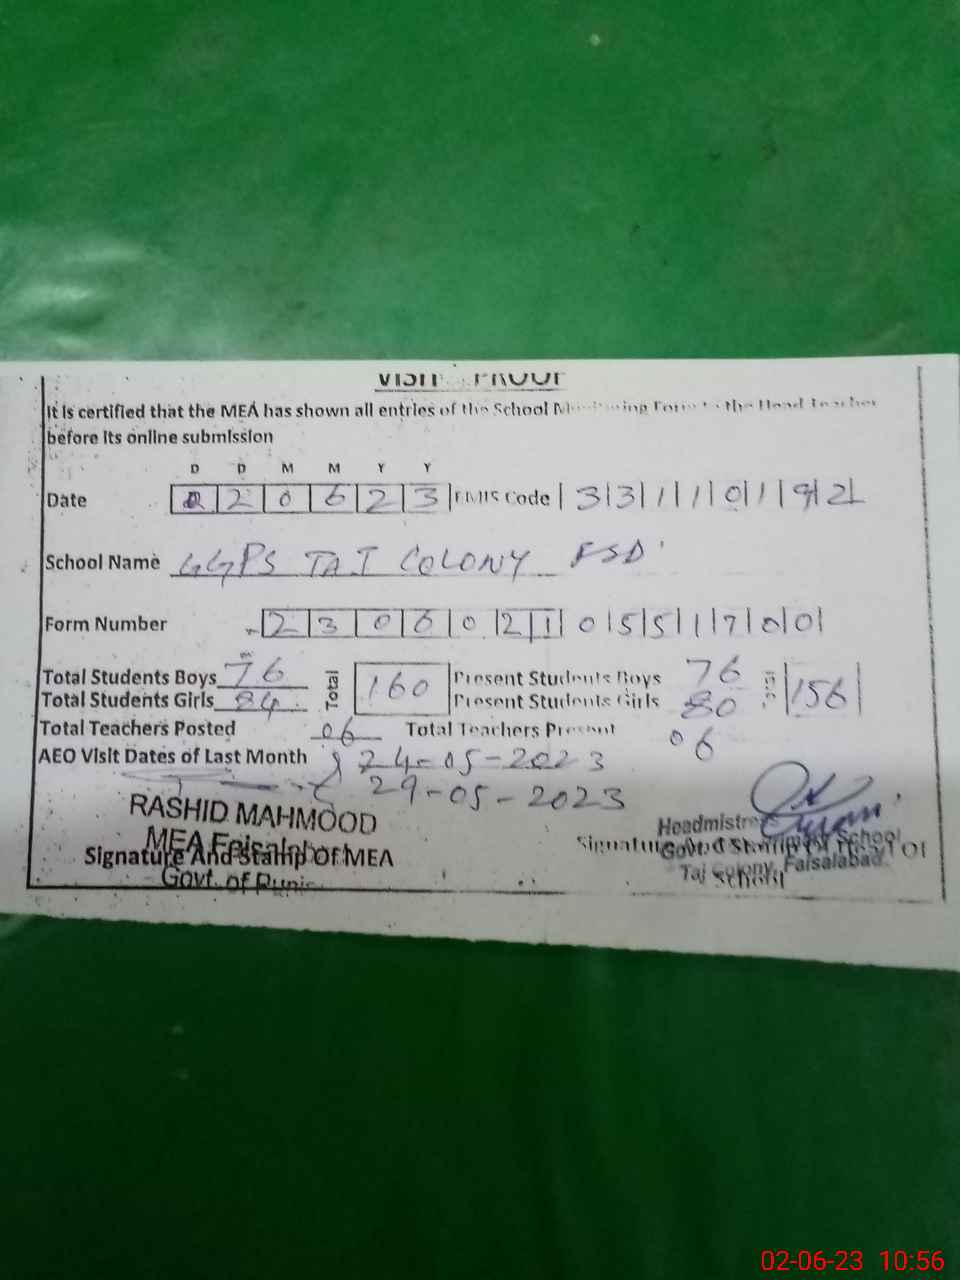 VISIT PROOF
It is certified that the MEA has shown all entries of the School Monitoring Form to the Head Teacher
before its online submission
D D M M Y Y
Date 0 2 0 6 2 3 EMIS Code 3 3 1 1 0 1 9 2
School Name GGPS TAJ COLONY FSD
Form Number 2 3 0 6 0 2 1 0 5 5 1 7 0 0
Total Students Boys 76 Total 160 Present Students Boys 76 Total 156
Total Students Girls 84 Present Students Girls 80
Total Teachers Posted 06 Total Teachers Present 06
AEO Visit Dates of Last Month 24-05-2023
29-05-2023
RASHID MAHMOOD
MEA Faisalabad
Govt. of Punjab
Signature And Stamp Of MEA
Headmistress
Govt. School
Taj Colony, Faisalabad
Signature And Stamp Of Head Of
School
02-06-23 10:56